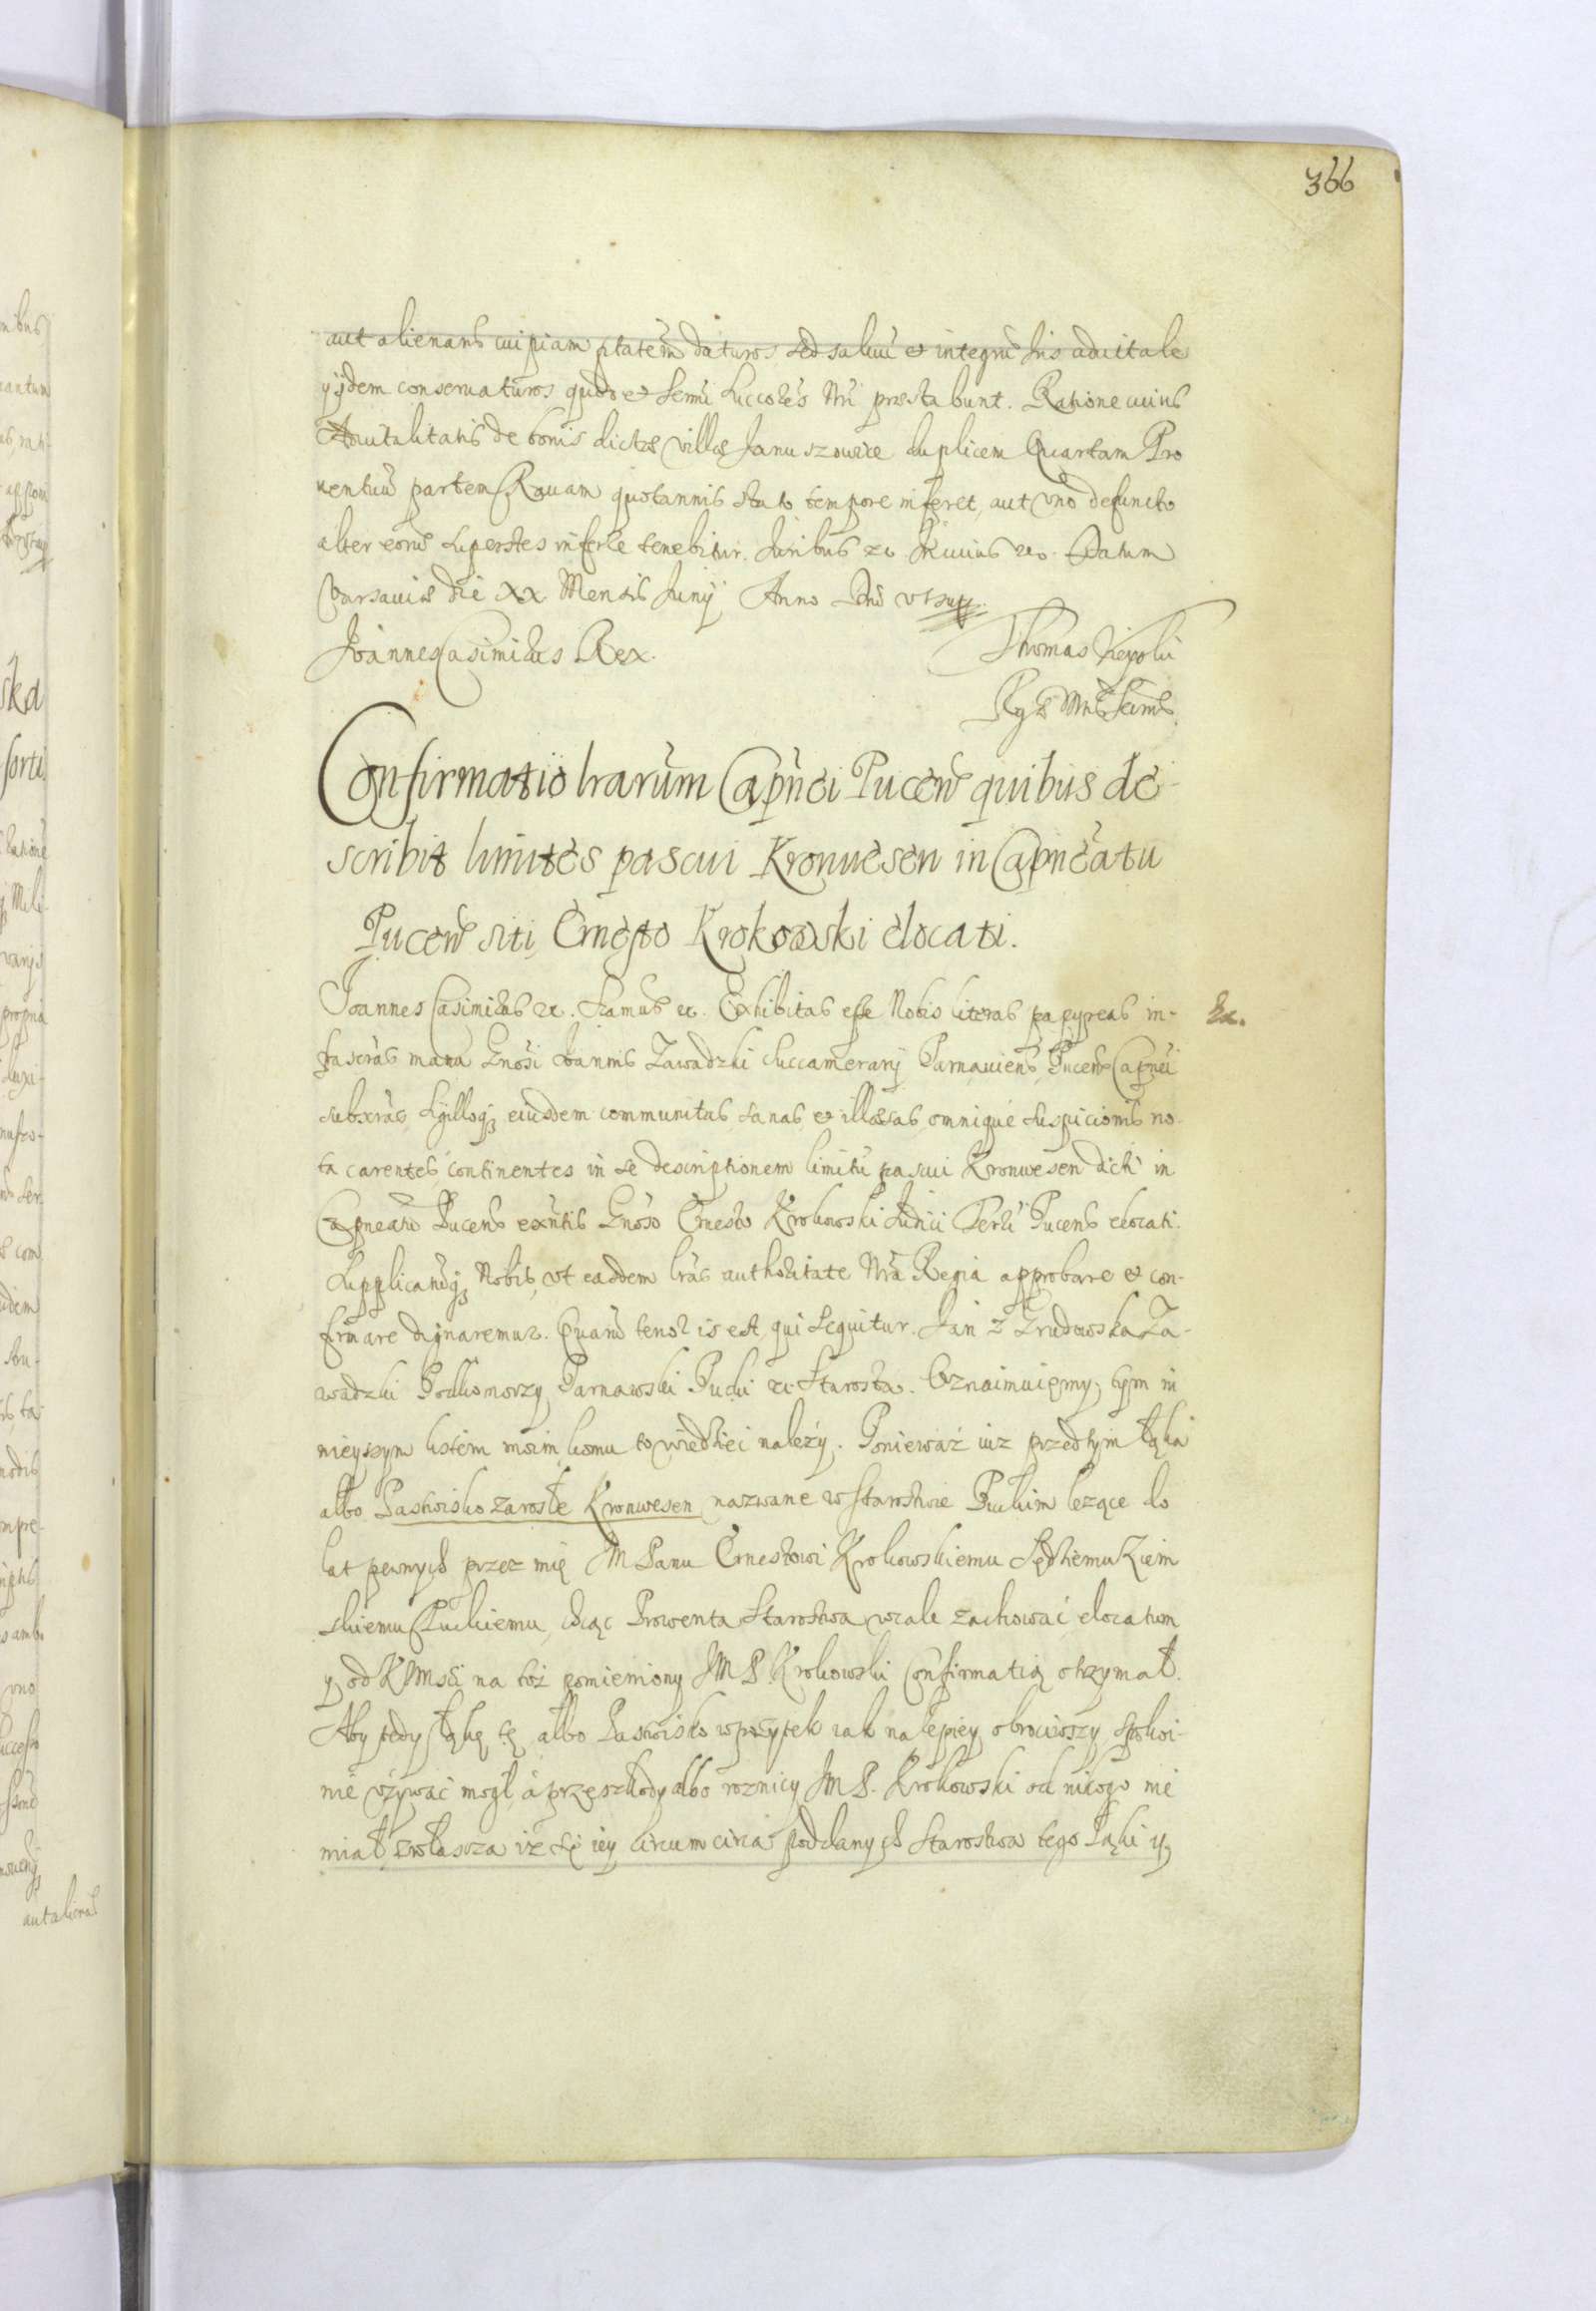 366
aut alienand cuipiam ptatem daturos sed saluu et integru Ius aduitale
ijsdem conseruaturos quod et Sermi Succores Nri praestabunt. Ratione cuius
Aduitalitatis de bonis dictae villae Januszowice duplicem Quartam Pro
uentuu partem Rauam quotannis stato tempore inferet, aut vno defuncto
alter eoru superstes inferre tenebitur. Juribus etc. In cuius etc. Datum
Varsauiae die XX Mensis Junij Anno Dni vt supr.
Joannes Casimirus Rex. Thomas
Rgae Mtis Scrius
Confirmatio lrarum Capnei Pucen quibus de-
scribit limites pascui Kronwesen in Capneatu
Pucen siti, Ernesto Krokowski elocati.
Joannes Casimirus etc. Sigmus etc. Exhibitas esse Nobis literas papyreas in-
frascras manu Gnosi Joannis Zawadzki Succamerarij Parnauiens, Pucens Capnei
subscras, Sigilloq eiusdem communitas sanas et illaesas omnique suspicionis no-
ta carentes continentes in se descriptionem limitu pascui Kronwesen dicti in
Capneatu Pucens exntis Gnoso Ernesto Krokowski Judici Terri Pucens elocati.
Supplicatuq Nobis, vt easdem lras authoritate Nra Regia approbare et con-
firmare dignaremur. Quaru tenor is est qui sequitur. Jan z Za-
wadzki Podkomorzy Parnawski Pucki etc Starosta. Oznaimuiemy tym ni
nieyszym listem moim komu to wiedziec nalezy. Poniewaz iuz przedtym Łąka
albo Pastwisko zarosłe Kronwesen nazwane w Starostwie Puckim lezące do
lat pewnych przez mię JM Panu Ernestowi Krokowskiemu Sędziemu Ziem
skiemu Puckiemu, chcąc Prowenta Starostwa wcale zachować elocatum
y od KJMsci na toż pomieniony JM P. Krokowski Confirmatią otrzymał.
Aby tedy Łąkę tę albo Pastwisko w pozytek iak nalepiey obrociwszy spokoi-
nie vżywać mogł, a przeszkody albo roznicy JM P. Krokowski od nikogo nie
miał, zwłascza iż się iey circumcirca poddanych Starostwa tego Łąki y
Ex.
aut alienad